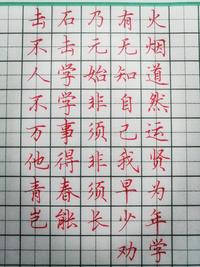 击石乃有火
不击元无烟
人学始知道
不学非自然
万事须己运
他得非我贤
青春须早为
岂能长少年
劝学